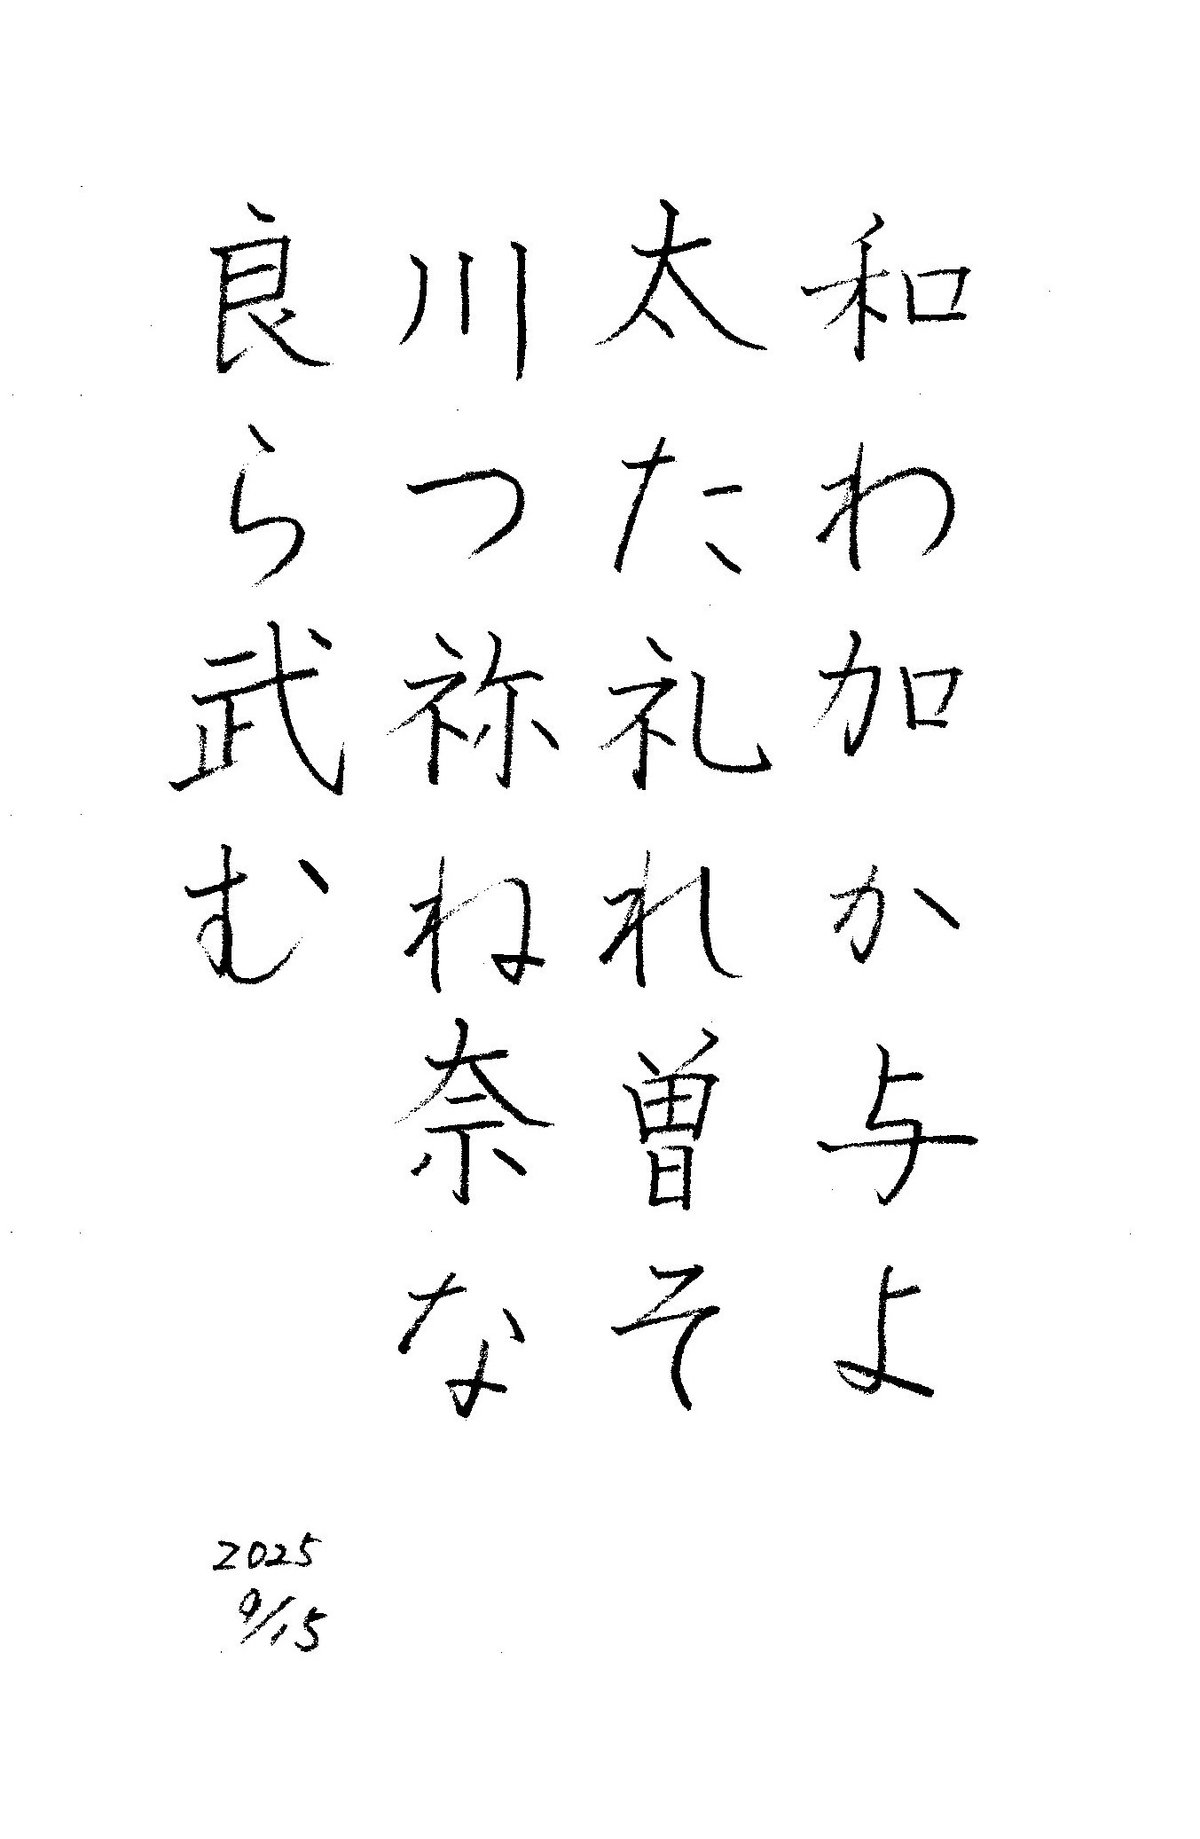 和わ加か与よ
太た礼れ曽そ
川つ祢ね奈な
良ら武む
2025
9/15